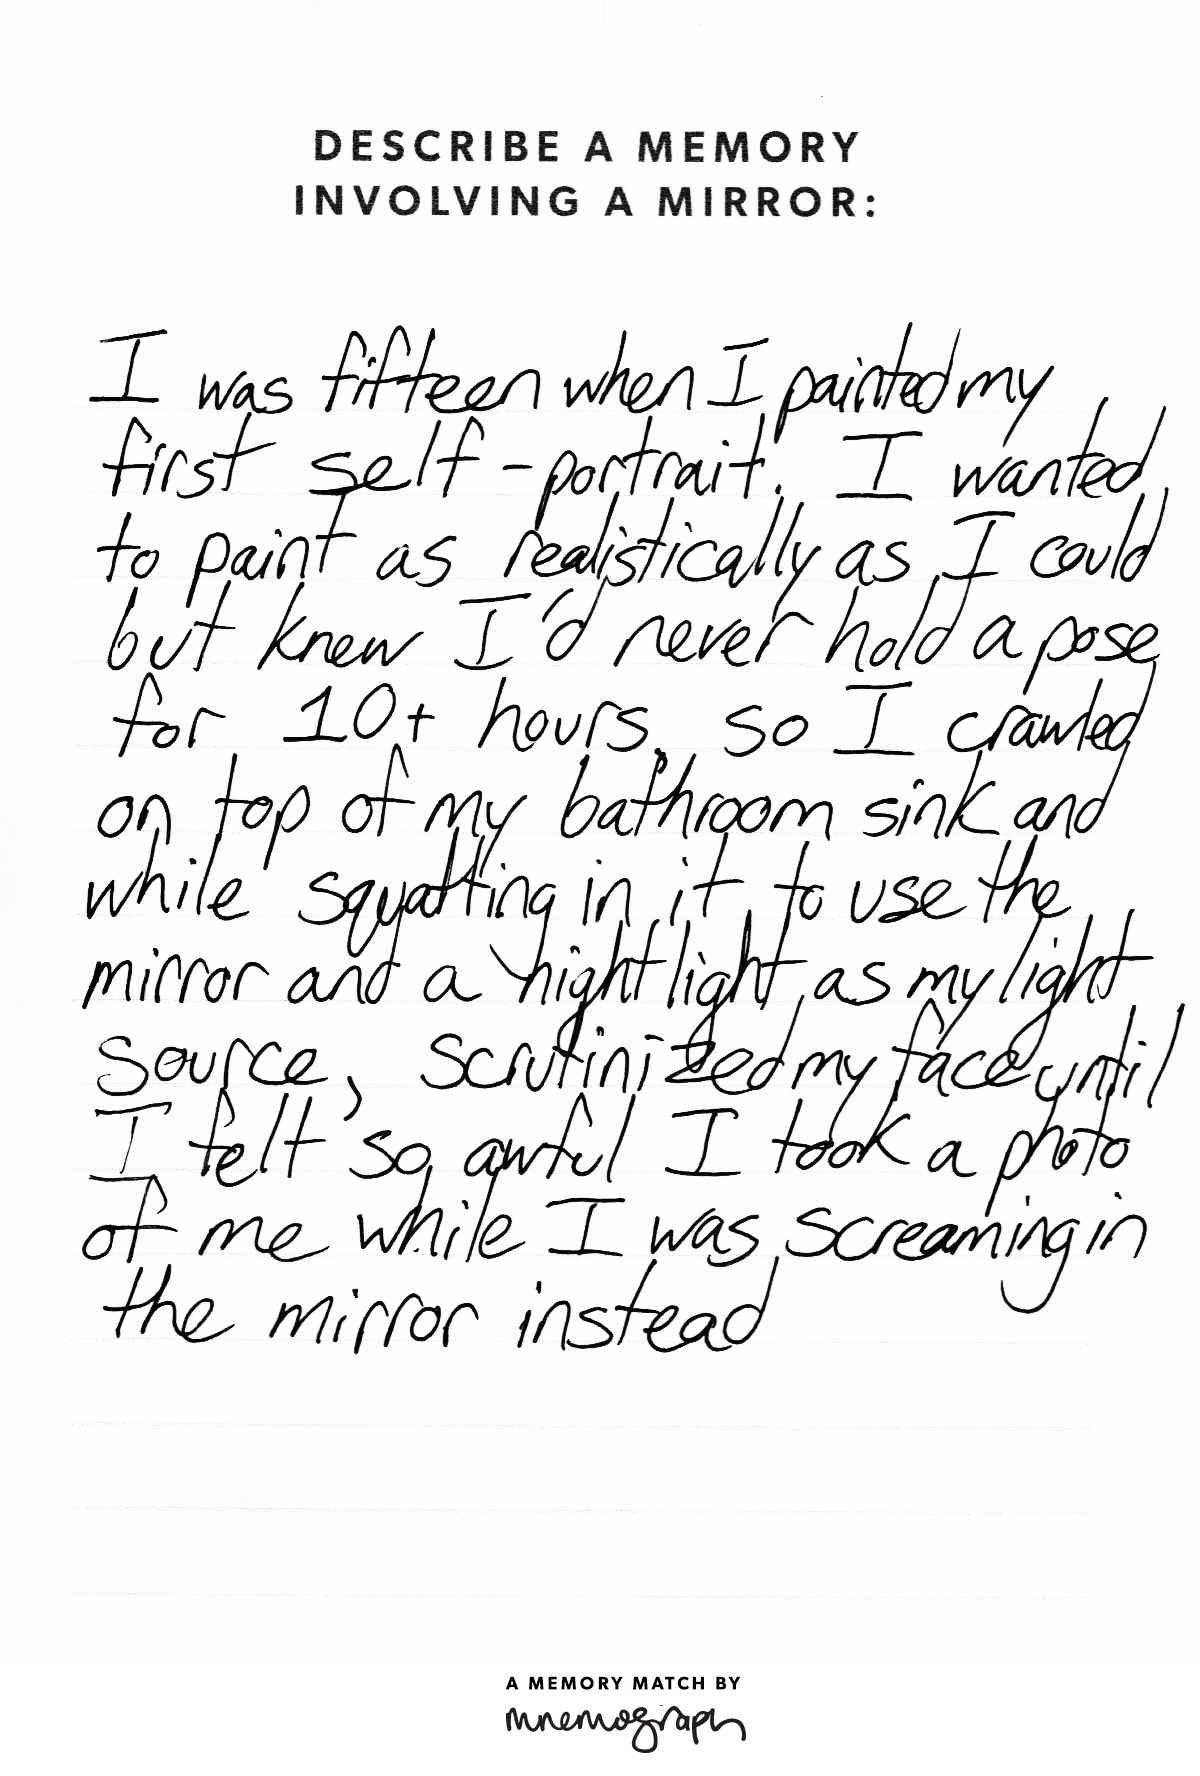 DESCRIBE A MEMORY
INVOLVING A MIRROR:
I was fifteen when I painted my
first self-portrait. I wanted
to paint as realistically as I could
but knew I'd never hold a pose
for 10+ hours, so I crawled
on top of my bathroom sink and
while squatting in it to use the
mirror and a nightlight as my light
source, scrutinized my face until
I felt so awful I took a photo
of me while I was screaming in
the mirror instead
A MEMORY MATCH BY
mnemograph